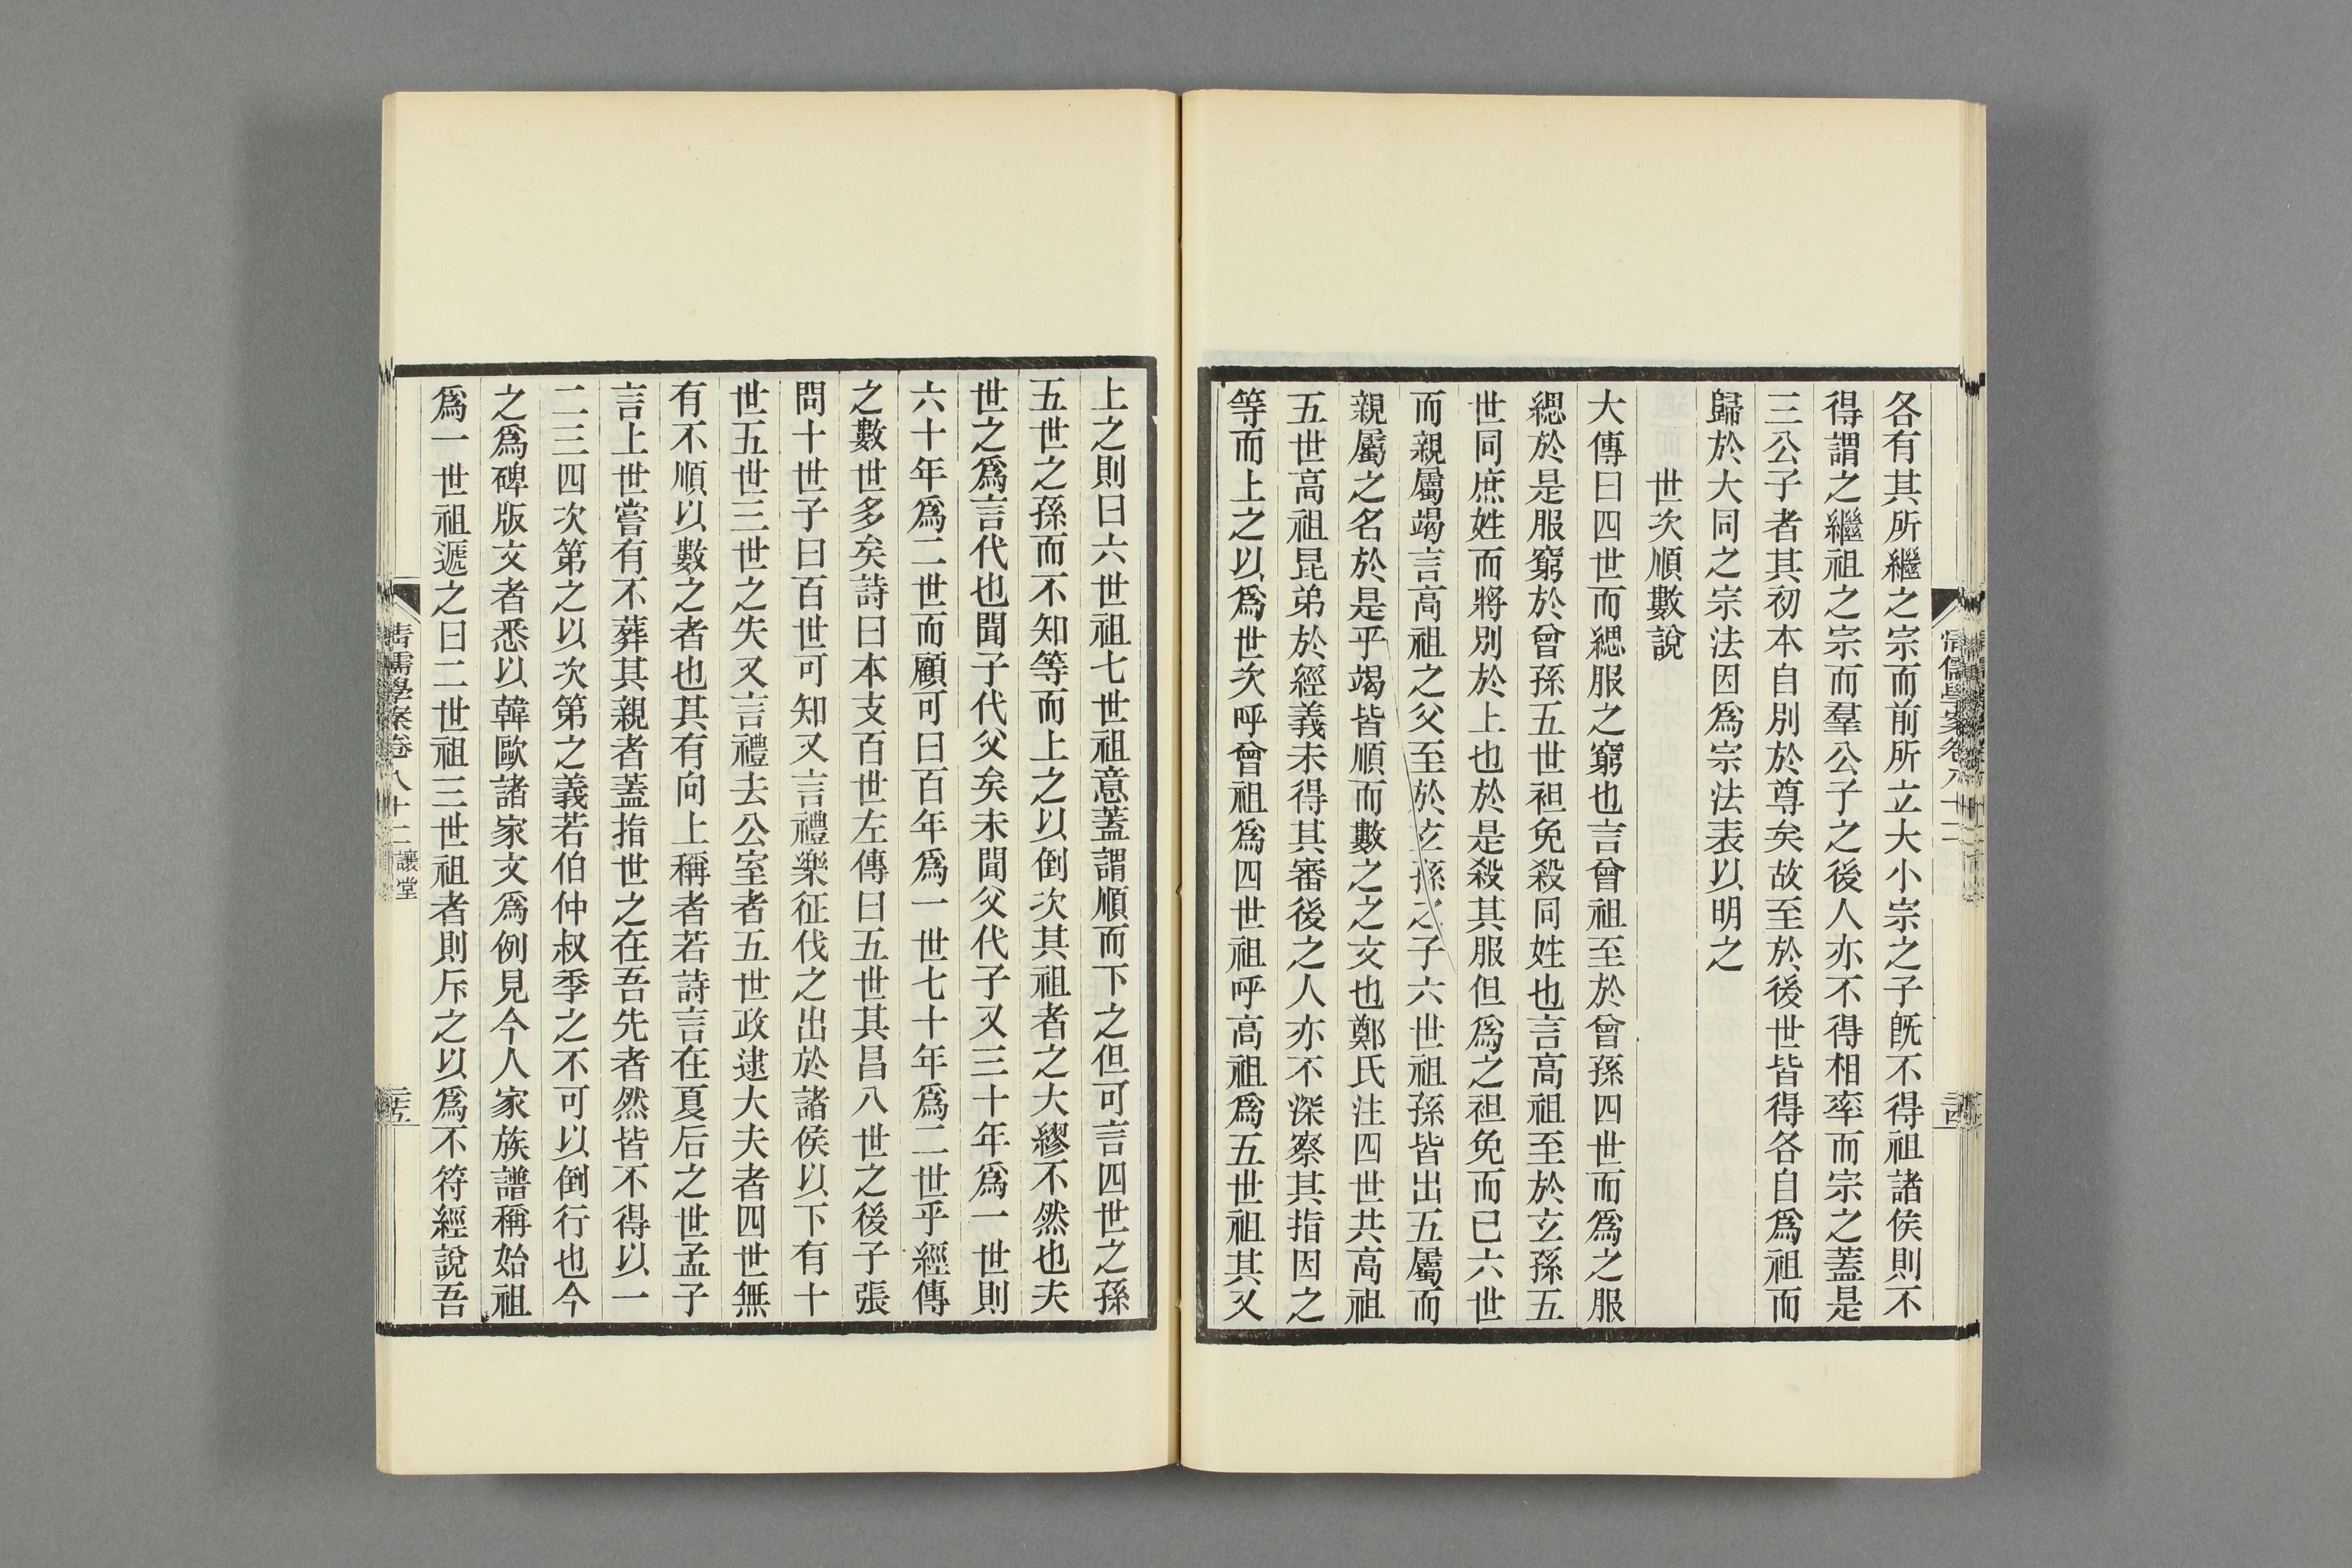 各有其所繼之宗而前所立大小宗之子旣不得祖諸侯則不
得謂之繼祖之宗而羣公子之後人亦不得相率而宗之蓋是
三公子者其初本自別於尊矣故至於後世皆得各自爲祖而
歸於大同之宗法因爲宗法表以明之
世次順數說
大傳曰四世而緦服之窮也言曾祖至於曾孫四世而爲之服
緦於是服窮於曾孫五世袒免殺同姓也言高祖至於玄孫五
世同庶姓而將別於上也於是殺其服但爲之袒免而已六世
而親屬竭言高祖之父至於玄孫之子六世祖孫皆出五屬而
親屬之名於是乎竭皆順而數之之文也鄭氏注四世共高祖
五世高祖昆弟於經義未得其審後之人亦不深察其指因之
等而上之以爲世次呼曾祖爲四世祖呼高祖爲五世祖其又
上之則曰六世祖七世祖意蓋謂順而下之但可言四世之孫
五世之孫而不知等而上之以倒次其祖者之大繆不然也夫
世之爲言代也聞子代父矣未聞父代子又三十年爲一世則
六十年爲二世而顧可曰百年爲一世七十年爲二世乎經傳
之數世多矣詩曰本支百世左傳曰五世其昌八世之後子張
問十世子曰百世可知又言禮樂征伐之出於諸侯以下有十
世五世三世之失又言禮去公室者五世政逮大夫者四世無
有不順以數之者也其有向上稱者若詩言在夏后之世孟子
言上世嘗有不葬其親者蓋指世之在吾先者然皆不得以一
二三四次第之以次第之義若伯仲叔季之不可以倒行也今
之爲碑版文者悉以韓歐諸家文爲例見今人家族譜稱始祖
爲一世祖遞之曰二世祖三世祖者則斥之以爲不符經說吾
清儒學案卷八十二 讓堂